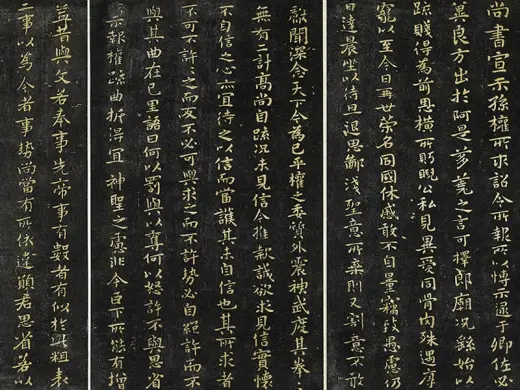 尚書宣示孫權所求詔令所報所以博示逮于卿佐必
冀良方出於阿是芻蕘之言可擇郎廟況繇始以
疏賤得為前恩橫所盱睨公私見異愛同骨肉殊遇厚
寵以至今日再世榮名同國休慼敢不自量竊致愚慮仍
日達晨坐以待旦退思鄙淺聖意所棄則又割意不敢
獻聞深念天下今為已平權之委質外震神武度其拳〻
無有二計高尚自疏況未見信今推款誠欲求見信實懷
不自信之心亦宜待之以信而當護其未自信也其所求者
不可不許〻之而反不必可與求之而不許勢必自絕許而不
與其曲在己里語曰何以罰與以奪何以怒許不與思省
所示報權疏曲折得宜〻神聖之慮非今臣下所能有增
益昔與文若奉事先帝事有數者有似於此粗表
二事以為今者事勢尚當有所依違願君思省若以